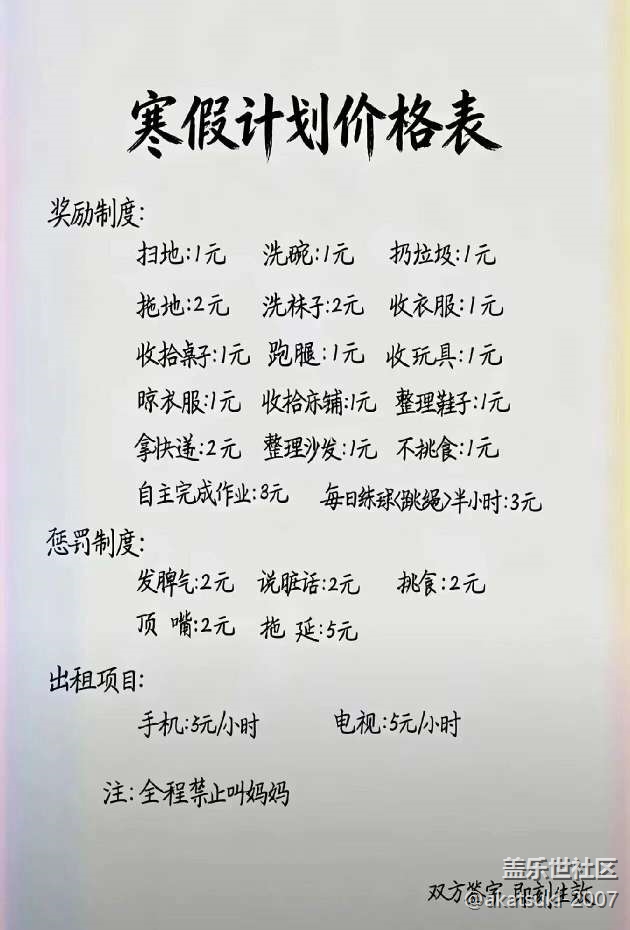 寒假计划价格表
奖励制度:
扫地:1元 洗碗:1元 扔垃圾:1元
拖地:2元 洗袜子:2元 收衣服:1元
收拾桌子:1元 跑腿:1元 收玩具:1元
晾衣服:1元 收拾床铺:1元 整理鞋子:1元
拿快递:2元 整理沙发:1元 不挑食:1元
自主完成作业:3元 每日练球<跳绳>半小时:3元
惩罚制度:
发脾气:2元 说脏话:2元 挑食:2元
顶 嘴:2元 拖 延:5元
出租项目:
手机:5元/小时 电视:5元/小时
注:全程禁止叫妈妈
盖乐世社区
双方签字 即刻生效
@akatsuki-2007